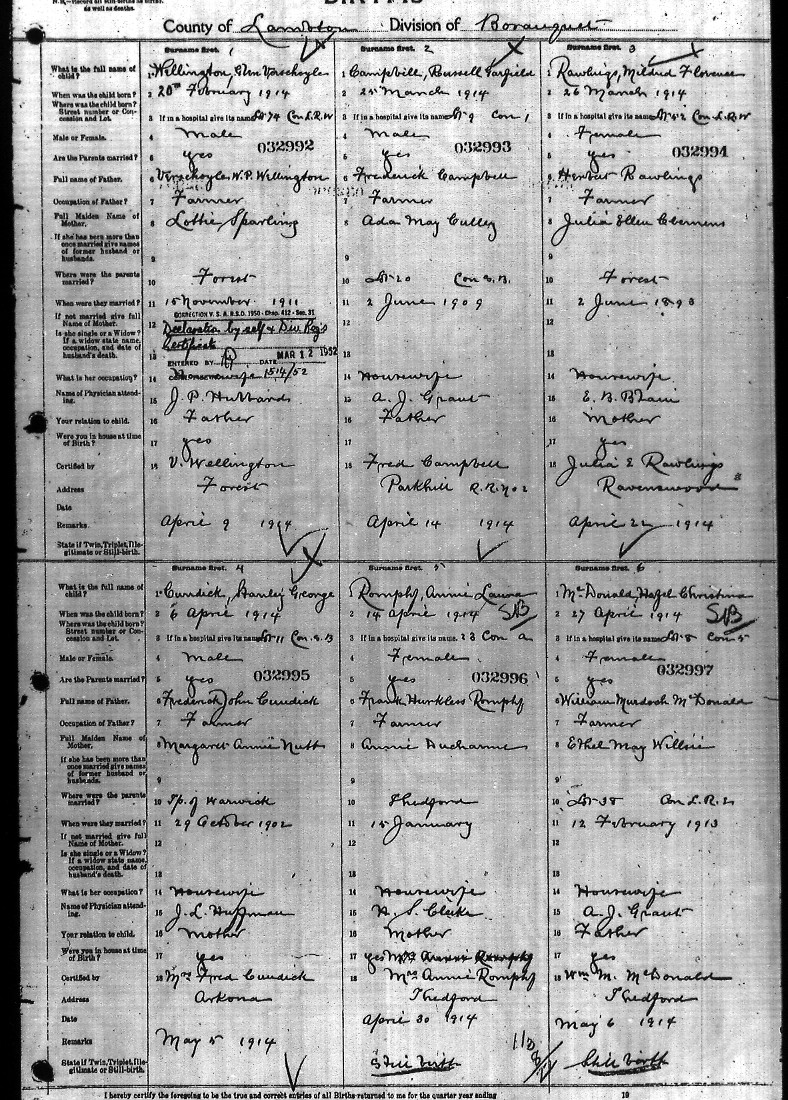 N.B.—Record all still-births as births,
as well as deaths.
BIRTHS
County of Lambton Division of Bosanquet
Surname first. 1
Surname first. 2
Surname first. 3
What is the full name of child?
1 Wellington, Verschoyle
1 Campbell, Russell Garfield
1 Rawlings, Mildred Florence
When was the child born?
2 20th February 1914
2 March 1914
2 26 March 1914
Where was the child born? Street number or Concession and Lot.
3 If in a hospital give its name Lot 74 Con L.R.W
3 If in a hospital give its name Lot 9 Con 1
3 If in a hospital give its name Lot 42 Con L.R.W
Male or Female.
4 Male
4 Male
4 Female
032992
032993
032994
Are the Parents married?
5 yes
5 yes
5 yes
Full name of Father.
6 Verschoyle W.P. Wellington
6 Frederick Campbell
6 Herbert Rawlings
Occupation of Father?
7 Farmer
7 Farmer
7 Farmer
Full Maiden Name of Mother.
8 Lottie Sparling
8 Ada May Culley
8 Julia Ellen Clemens
If she has been more than once married give names of former husband or husbands.
9
9
9
Where were the parents married?
10 Forest
10 Lot 20 Con S.B.
10 Forest
When were they married?
11 15 November 1911
11 2 June 1909
11 2 June 1898
If not married give full Name of Mother.
CORRECTION V. S. A. R.S.O. 1950 - Chap. 412 - Sec. 31
12 Declaration by self & Div Reg's
12
12
Is she single or a Widow? If a widow state name, occupation, and date of husband's death.
Certificate
13 ENTERED BY DATE MAR 12 1952
13
13
1514/52
What is her occupation?
14 Housewife
14 Housewife
14 Housewife
Name of Physician attending.
15 J. P. Hubbard
15 A. J. Grant
15 E. B.
Your relation to child.
16 Father
16 Father
16 Mother
Were you in house at time of Birth?
17 yes
17
17 yes
Certified by
18 V. Wellington
18 Fred Campbell
18 Julia E Rawlings
Address
Forest
Parkhill R.R. No 2
Ravenswood
Date
Remarks
April 9 1914
April 14 1914
April 22 1914
State if Twin, Triplet, Illegitimate or Still-birth.
Surname first. 4
Surname first. 5
Surname first. 6
What is the full name of child?
1 Cundick, Stanley George
1 Romphf, Annie Laura
1 McDonald Hazel Christina
When was the child born?
2 6 April 1914
2 14 April 1914 SB
2 27 April 1914 SB
Where was the child born? Street number or Concession and Lot.
3 If in a hospital give its name Lot 11 Con S.B
3 If in a hospital give its name. 23 Con A
3 If in a hospital give its name Lot 8 Con 5
Male or Female.
4 Male
4 Female
4 Female
032995
032996
032997
Are the Parents married?
5 yes
5 yes
5 yes
Full name of Father.
6 Frederick John Cundick
6 Frank Hurkless Romphf
6 William Murdoch McDonald
Occupation of Father?
7 Farmer
7 Farmer
7 Farmer
Full Maiden Name of Mother.
8 Margaret Annie Nutt
8 Annie Ducharme
8 Ethel May Willsie
If she has been more than once married give names of former husband or husbands.
9
9
9
Where were the parents married?
10 Tp. of Warwick
10 Thedford
10 Lot 38 Con L.R.E.
When were they married?
11 29 October 1902
11 15 January
11 12 February 1913
If not married give full Name of Mother.
12
12
12
Is she single or a Widow? If a widow state name, occupation, and date of husband's death.
13
13
13
What is her occupation?
14 Housewife
14 Housewife
14 Housewife
Name of Physician attending.
15 J. L. Huffman
15 H. S. Clarke
15 A. J. Grant
Your relation to child.
16 Mother
16 Mother
16 Father
Were you in house at time of Birth?
17 yes
17 yes Mrs Annie Romphf
17 yes
Certified by
18 Mrs Fred Cundick
18 Mrs Annie Romphf
18 Wm M. McDonald
Address
Arkona
Thedford
Thedford
Date
April 30 1914
May 6 1914
Remarks
May 5 1914
State if Twin, Triplet, Illegitimate or Still-birth.
Still birth
Still birth
I hereby certify the foregoing to be the true and correct entries of all Births returned to me for the quarter year ending 19